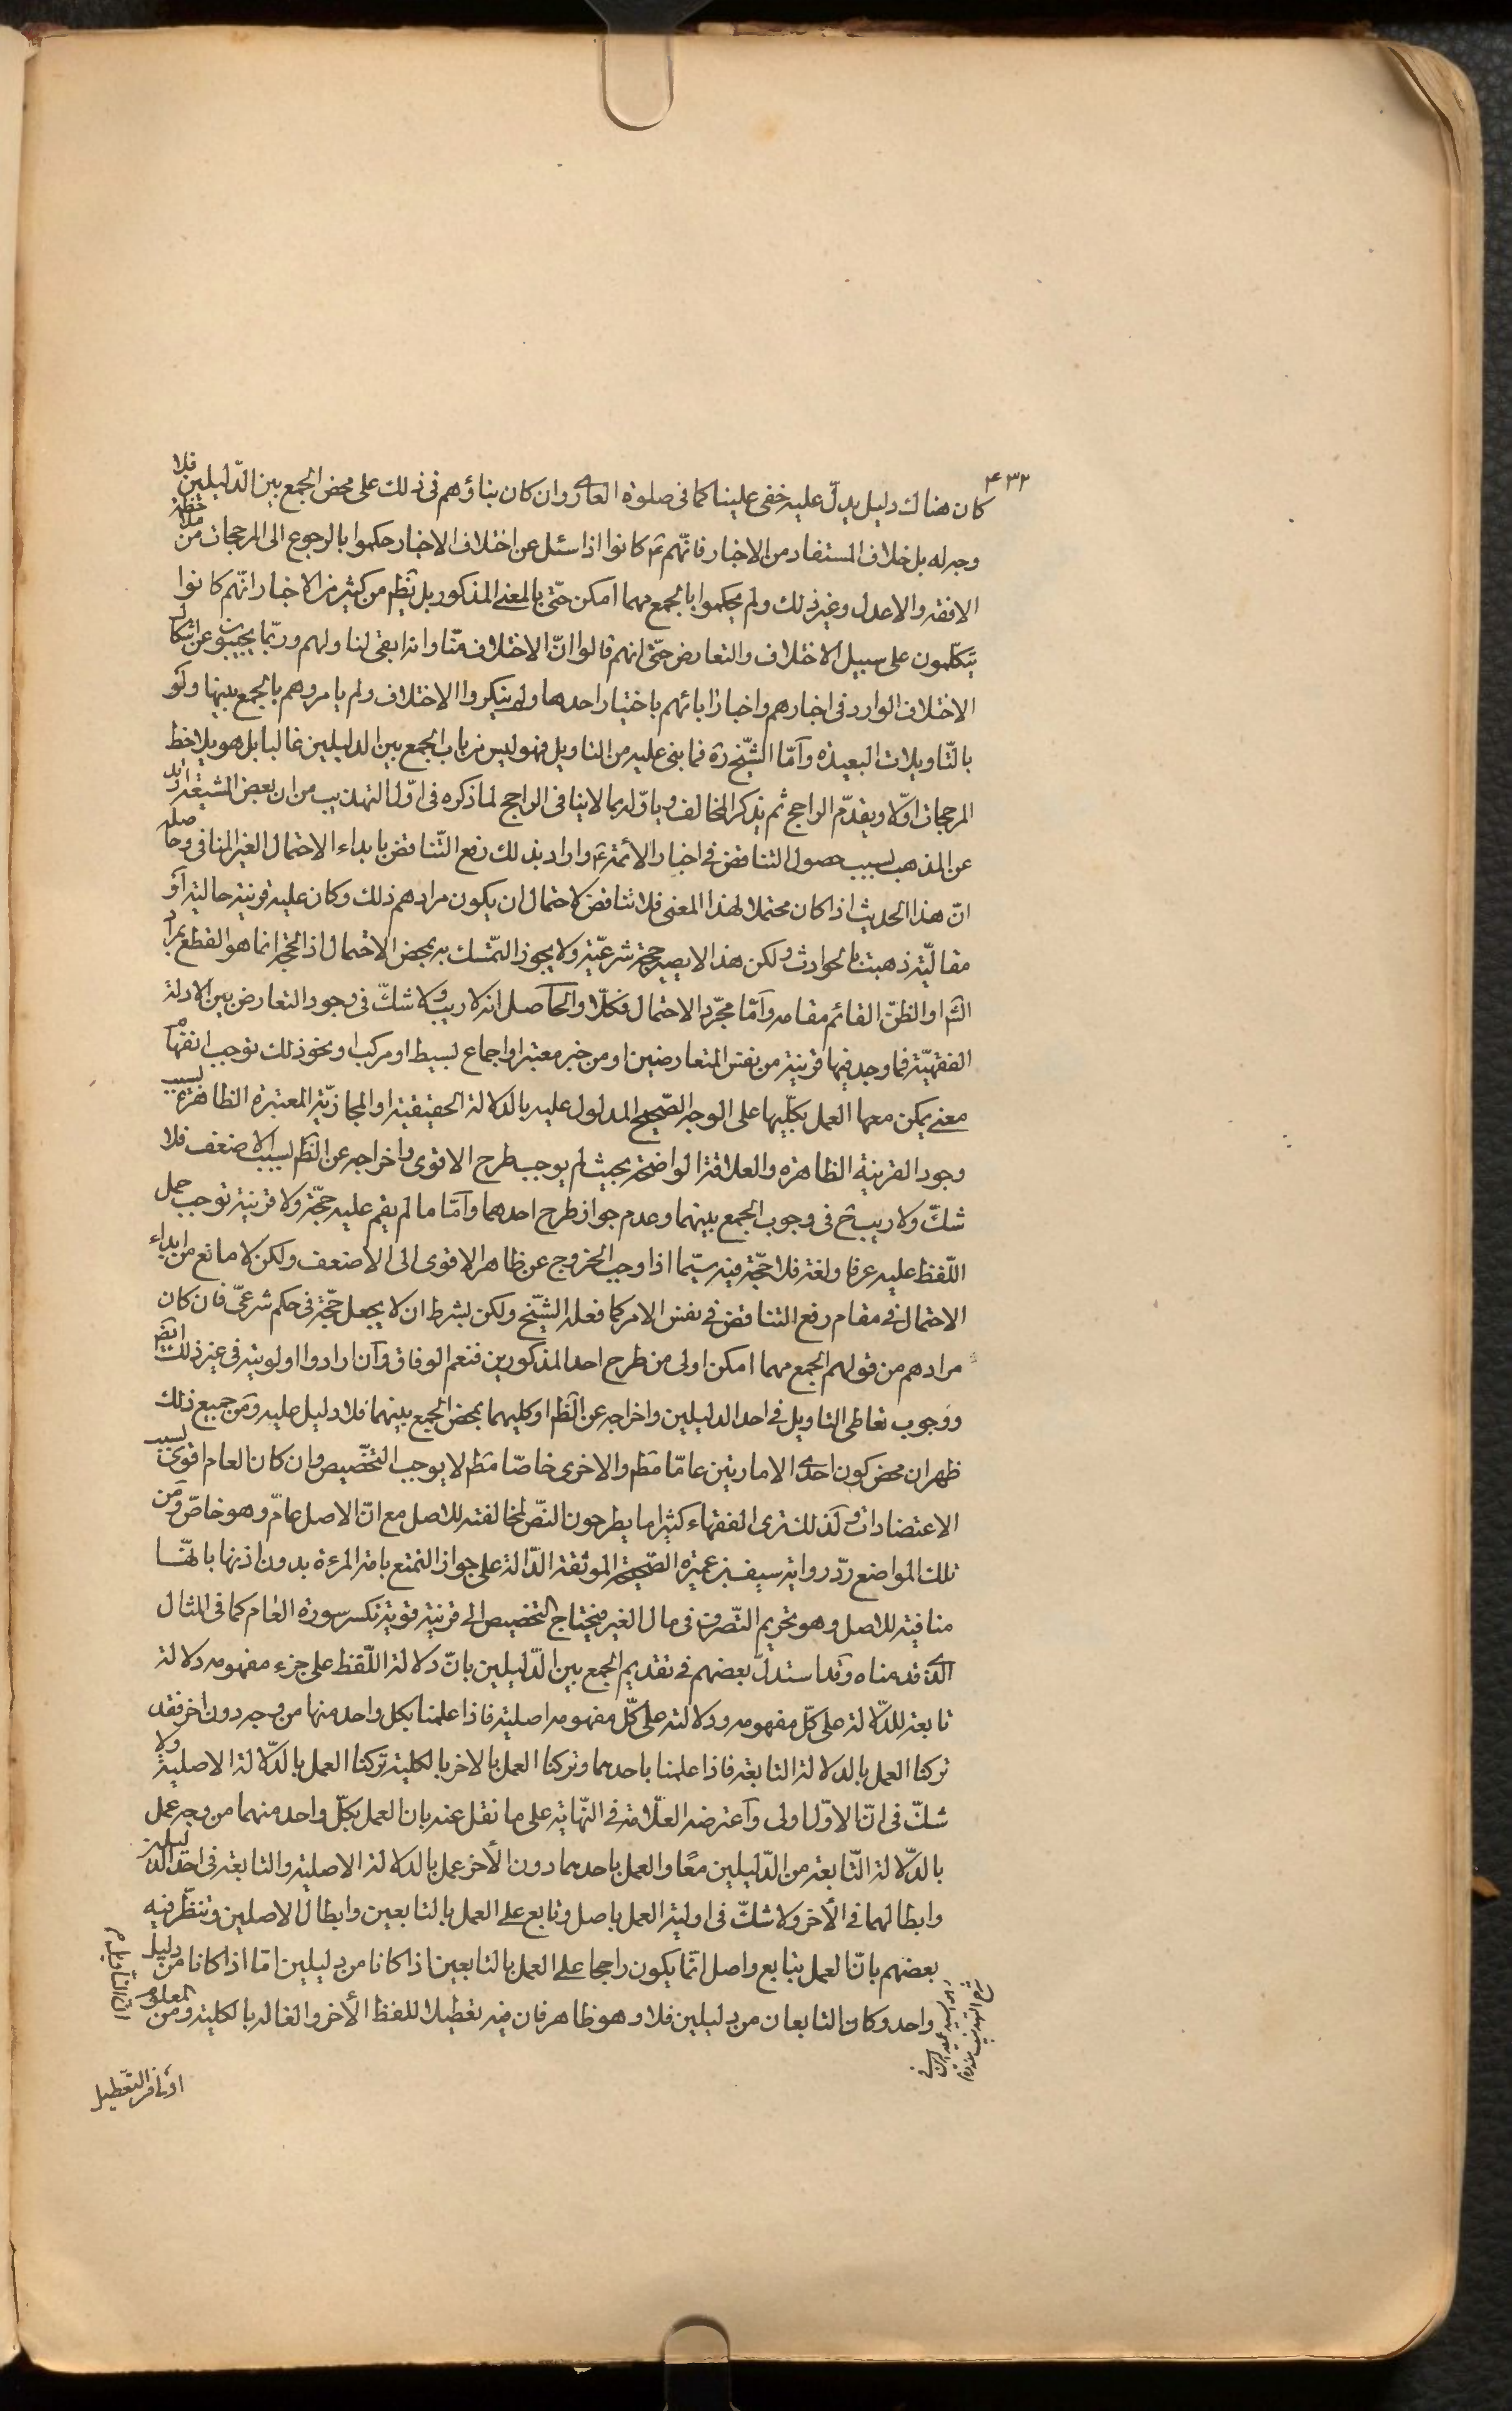 ۴۳۲
كان هناك دليل يدلّ عليه خفى علينا كما فى صلوة العارى وان كان بناؤهم فى ذلك على محض الجمع بين الدّليلين فلا
وجه له بل خلاف المستفاد من الاخبار فانّهم ع كانوا اذا سئل عن اختلاف الاخبار حكموا بالرجوع الى المرجحات من ملاحظة
الافقه والاعدل وغير ذلك ولم يحكموا بالجمع مهما امكن حتّى بالمعنى المذكور بل يظهر من كثير من الاخبار انّهم كانوا
يتكلّمون على سبيل الاختلاف والتعارض حتّى انهم قالوا انّ الاختلاف منّا وانه ابقى لنا ولهم وربّما يجيبون عن اشكال
الاختلاف الوارد فى اخبارهم واخبار ابائهم باختيار احدها ولم ينكروا الاختلاف ولم يامروهم بالجمع بينها ولو
بالتّاويلات البعيدة وآمّا الشّيخ ره فما بنى عليه من التاويل فهو ليس من باب الجمع بين الدليلين غالبا بل هو يلاحظ
المرجحات اوّلا ويقدّم الراجح ثم يذكر المخالف وياوّله بما لاينافى الراجح لما ذكره فى اوّل التهذيب من ان بعض الشيعة ارتد
عن المذهب لسبب حصول التناقض فى اخبار الأئمة ع واراد بذلك رفع التّناقض بابداء الاحتمال الغير المنافى وحاصله
انّ هذا الحديث اذا كان محتملا لهذا المعنى فلا تناقض لاحتمال ان يكون مرادهم ذلك وكان عليه قرينة حالية او
مقاليّة ذهبت بالحوادث ولكن هذا لا يصير حجّة شرعيّة ولا يجوز التمّسك به بمحض الاحتمال اذ الحجّة انما هو القطع بمراد
الش او الظنّ القائم مقامه وآمّا مجرّد الاحتمال فكلّا والحآصل انه لا ريب ولا شكّ فى وجود التعارض بين الادلة
الفقهيّة فما وجد فيها قرينة من نفس المتعارضين او من خبر معتبر او اجماع بسيط او مركب او نحو ذلك توجب انفهام
معنى يمكن معها العمل بكلّيها على الوجه الصّحيح المدلول عليه بالدلالة الحقيقية او المجازيّة المعتبرة الظاهرة لسبب
وجود القرينة الظاهرة والعلاقة الواضحة بحيث لم يوجب طرح الاقوى واخراجه عن الظم لسبب الاضعف فلا
شكّ ولا ريب ح فى وجوب الجمع بينهما وعدم جواز طرح احدهما وآمّا ما لم يقم عليه حجّة ولا قرينة توجب حمل
اللّفظ عليه عرفا ولغة فلا حجّة فيه سيّما اذا وجب الخروج عن ظاهر الاقوى الى الاضعف ولكن لا مانع من ابداء
الاحتمال فى مقام رفع التناقض فى نفس الامر كما فعله الشّيخ ولكن بشرط ان لا يجعل حجّة فى حكم شرعىّ فان كان
مرادهم من قولهم الجمع مهما امكن اولى من طرح احد المذكورين فنعم الوفاق وآن ارادوا اولويته فى غير ذلك ايضا
ووجوب تعاطى التاويل فى احد الدليلين واخراجه عن الظم او كليهما بمحض الجمع بينهما فلا دليل عليه ومن جميع ذلك
ظهر ان محض كون احدى الامارتين عامّا مطم والاخرى خاصّا مطم لا يوجب التخّصيص وان كان العام اقوى لسبب
الاعتضادات ولذلك ترى الفقهاء كثيرا ما يطرحون النصّ لمخالفته للاصل مع انّ الاصل عامّ وهو خاصّ ومن
تلك المواضع ردّ رواية سيف بن عميرة الصّحيحة الموثقة الدّالة على جواز التمتع بامة المرءة بدون اذنها بانّها
منافية للاصل وهو تحريم التّصرف فى مال الغير فيحتاج التخصيص الى قرينة قوية تكسر سورة العام كما فى المثال
الّذى قدمناه وقد استدلّ بعضهم فى تقديم الجمع بين الدّليلين بانّ دلالة اللّفظ على جزء مفهومه دلالة
تابعة للدّلالة على كلّ مفهومه ودلالته على كلّ مفهومه اصلية فاذا علمنا بكل واحد منها من وجه دون اخر فقد
تركنا العمل بالدلالة التابعة فاذا علمنا باحدهما وتركنا العمل بالاخر بالكلية تركنا العمل بالدّلالة الاصلية ولا
شكّ فى انّ الاوّل اولى وآعترضه العلّامة فى النّهاية على ما نقل عنه بان العمل بكلّ واحد منهما من وجه عمل
بالدّلالة التّابعة من الدّليلين معًا والعمل باحدهما دون الأخر عمل بالدلالة الاصلية والتابعة فى احد الدّليلين
وابطالهما فى الأخر ولا شكّ فى اولية العمل باصل وتابع على العمل بالتابعين وابطال الاصلين وتنظّر فيه
بعضهم بانّ العمل بتابع واصل انّما يكون راجحا على العمل بالتابعين اذا كانا من دليلين امّا اذا كانا من دليل
واحد وكان التابعان من دليلين فلا وهو ظاهر فان فيه تعطيلا للفظ الأخر والغاله بالكلية ومن المعلوم
انّ التاويل
هو السيد عميد الدين فى
شرح التهذيب
اولى من التعطيل